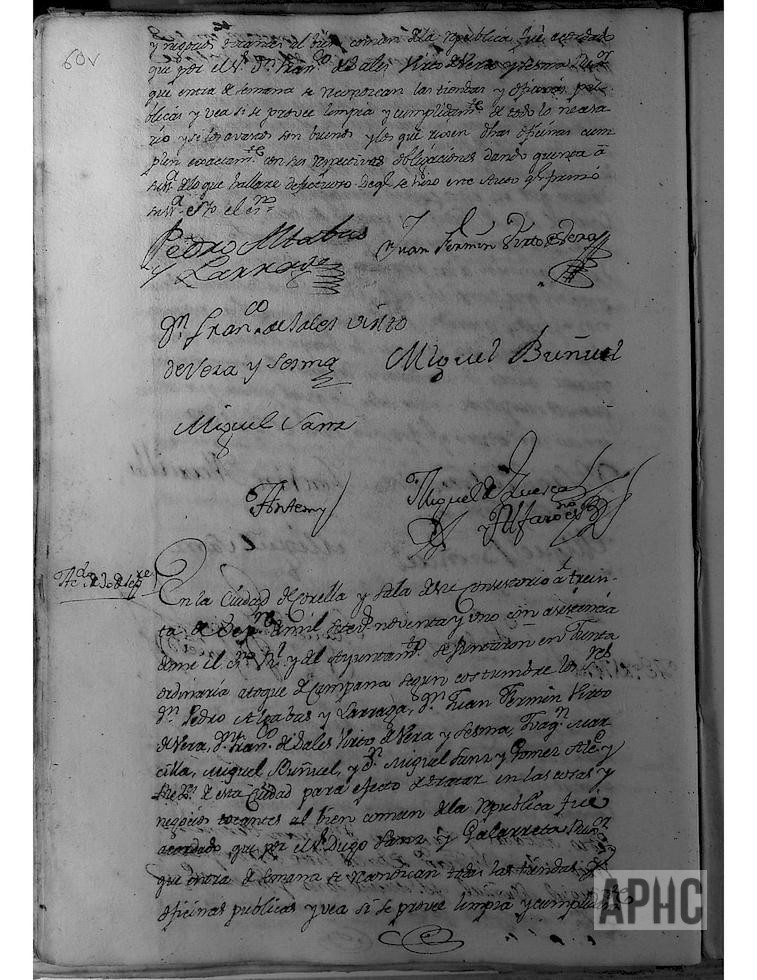 60v
y negocios tocantes al bien comun dela republica fué acordado
que por el Sr. Dn. Fran.co de Sales Virto de Vera y Sesma
que entra de semana se reconozcan las tiendas y oficinas pu-
blicas y vea si se provee limpia y cumplidam.te de todo lo necesa-
rio y si los averos son buenos y los que rixen dhas oficinas cum-
plen exactam.te con sus respectivas obligaciones dando quenta á
su S.ª delo que hallare defectuoso deql. se hizo este Auto ql. firmó
su S.ª
Pedro Alzabus
y Larraga
Juan Fermin Virto de Vera
Dn. Fran.co de Sales Virto
de Vera y Sesma
Miguel Buñuel
Miguel Sanz
Antemy
Miguel de Huesca
y Alfaro
En la Ciudad de Corella y sala de su Consistorio á trein-
ta de Sep.re de mil setez.s noventa y uno con asistencia
deme el y del Ayuntam.to se juntaron en Junta
ordinaria atoque de Campana segun costumbre los S.res
Dn. Pedro Alzabus y Larraga, Dn. Juan Fermin Virto
de Vera, Dn. Fran.co de Sales Virto de Vera y Sesma, Joaq.n Mar
cilla, Miguel Buñuel, y Dn. Miguel Sanz y Gomez Alc.e y
de esta Ciudad para efecto de tratar en las cosas y
negocios tocantes al bien comun dela republica fué
acordado que por el Sr. Diego Sanz y Galarreta
que entra de semana se reconozcan todas las tiendas y
oficinas publicas y vea si se provee limpia y cumplidam.te
APHC